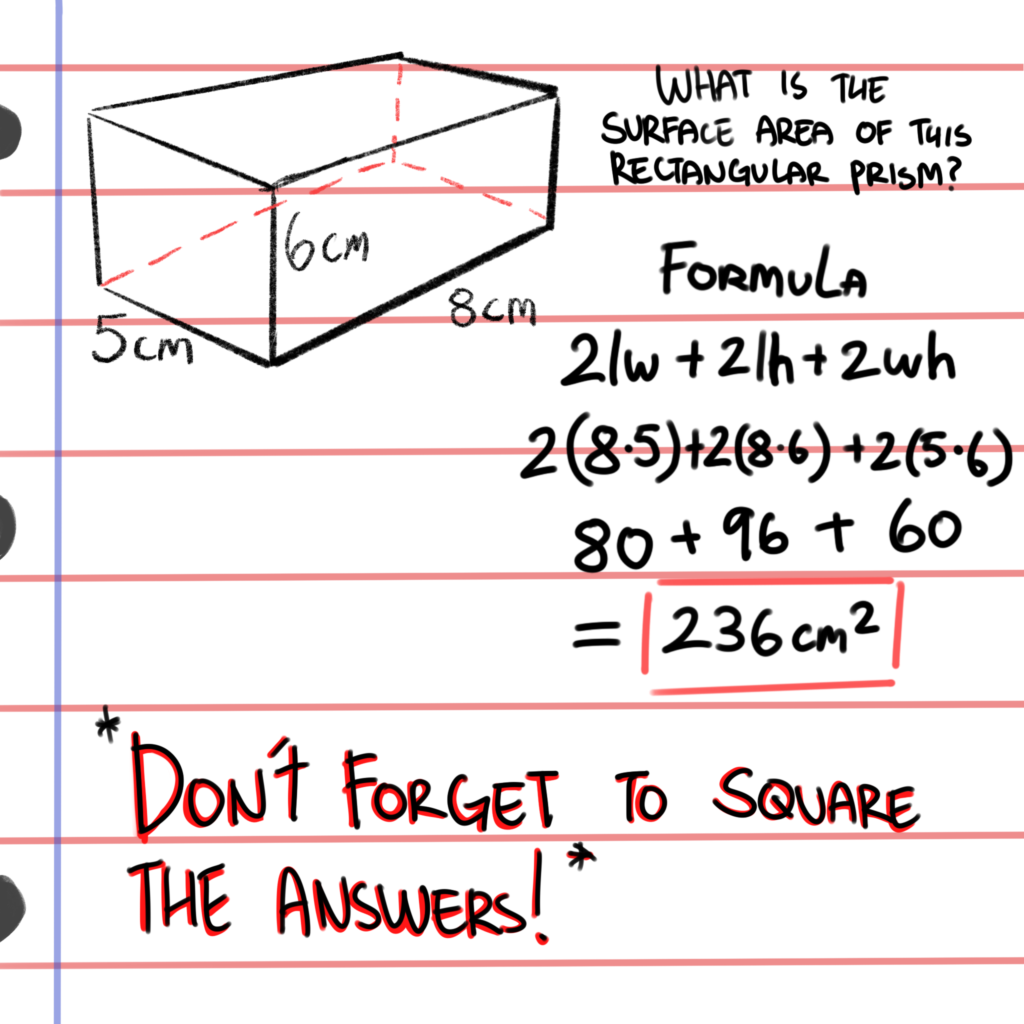 WHAT IS THE
SURFACE AREA OF THIS
RECTANGULAR PRISM?
6cm
8cm
5cm
FORMULA
2lw + 2lh + 2wh
2(8·5)+2(8·6)+2(5·6)
80 + 96 + 60
= 236cm²
*DON'T FORGET TO SQUARE
THE ANSWERS!*